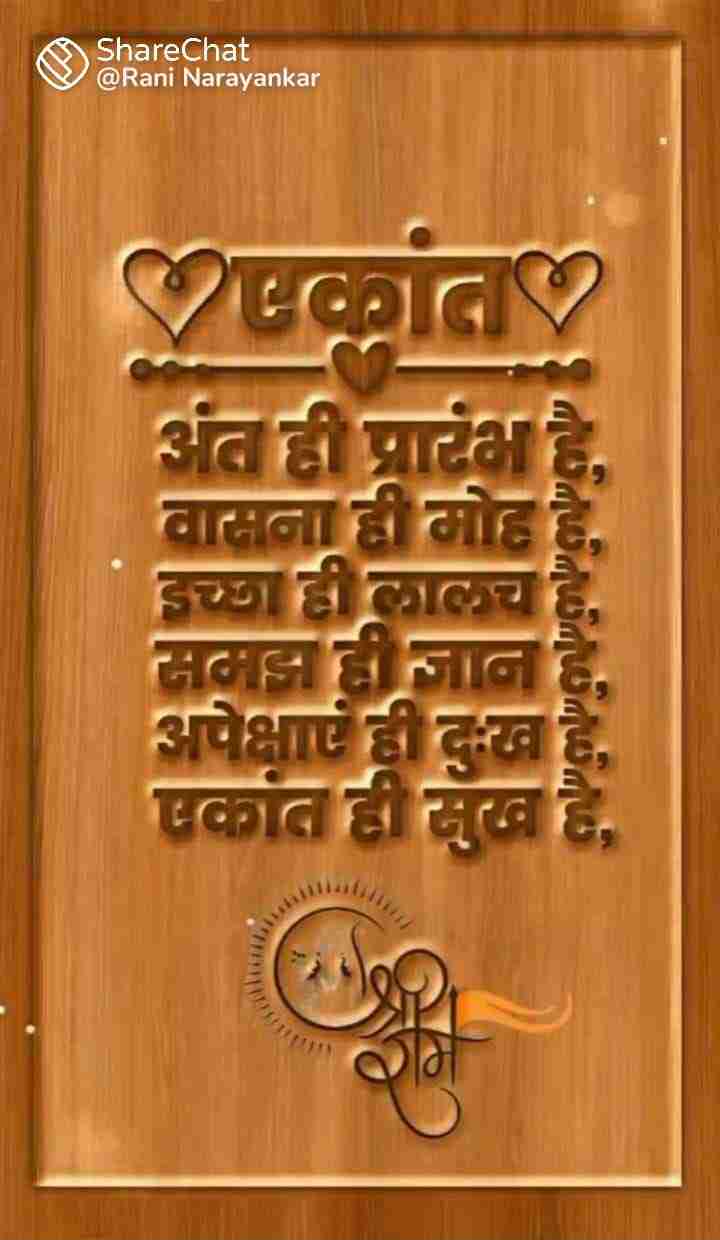 ShareChat
@Rani Narayankar
एकांत
अंत ही प्रारंभ है,
वासना ही मोह है,
इच्छा ही लालच है,
समझ ही जान है,
अपेक्षाएं ही दुःख है,
एकांत ही सुख है,
श्री
राम